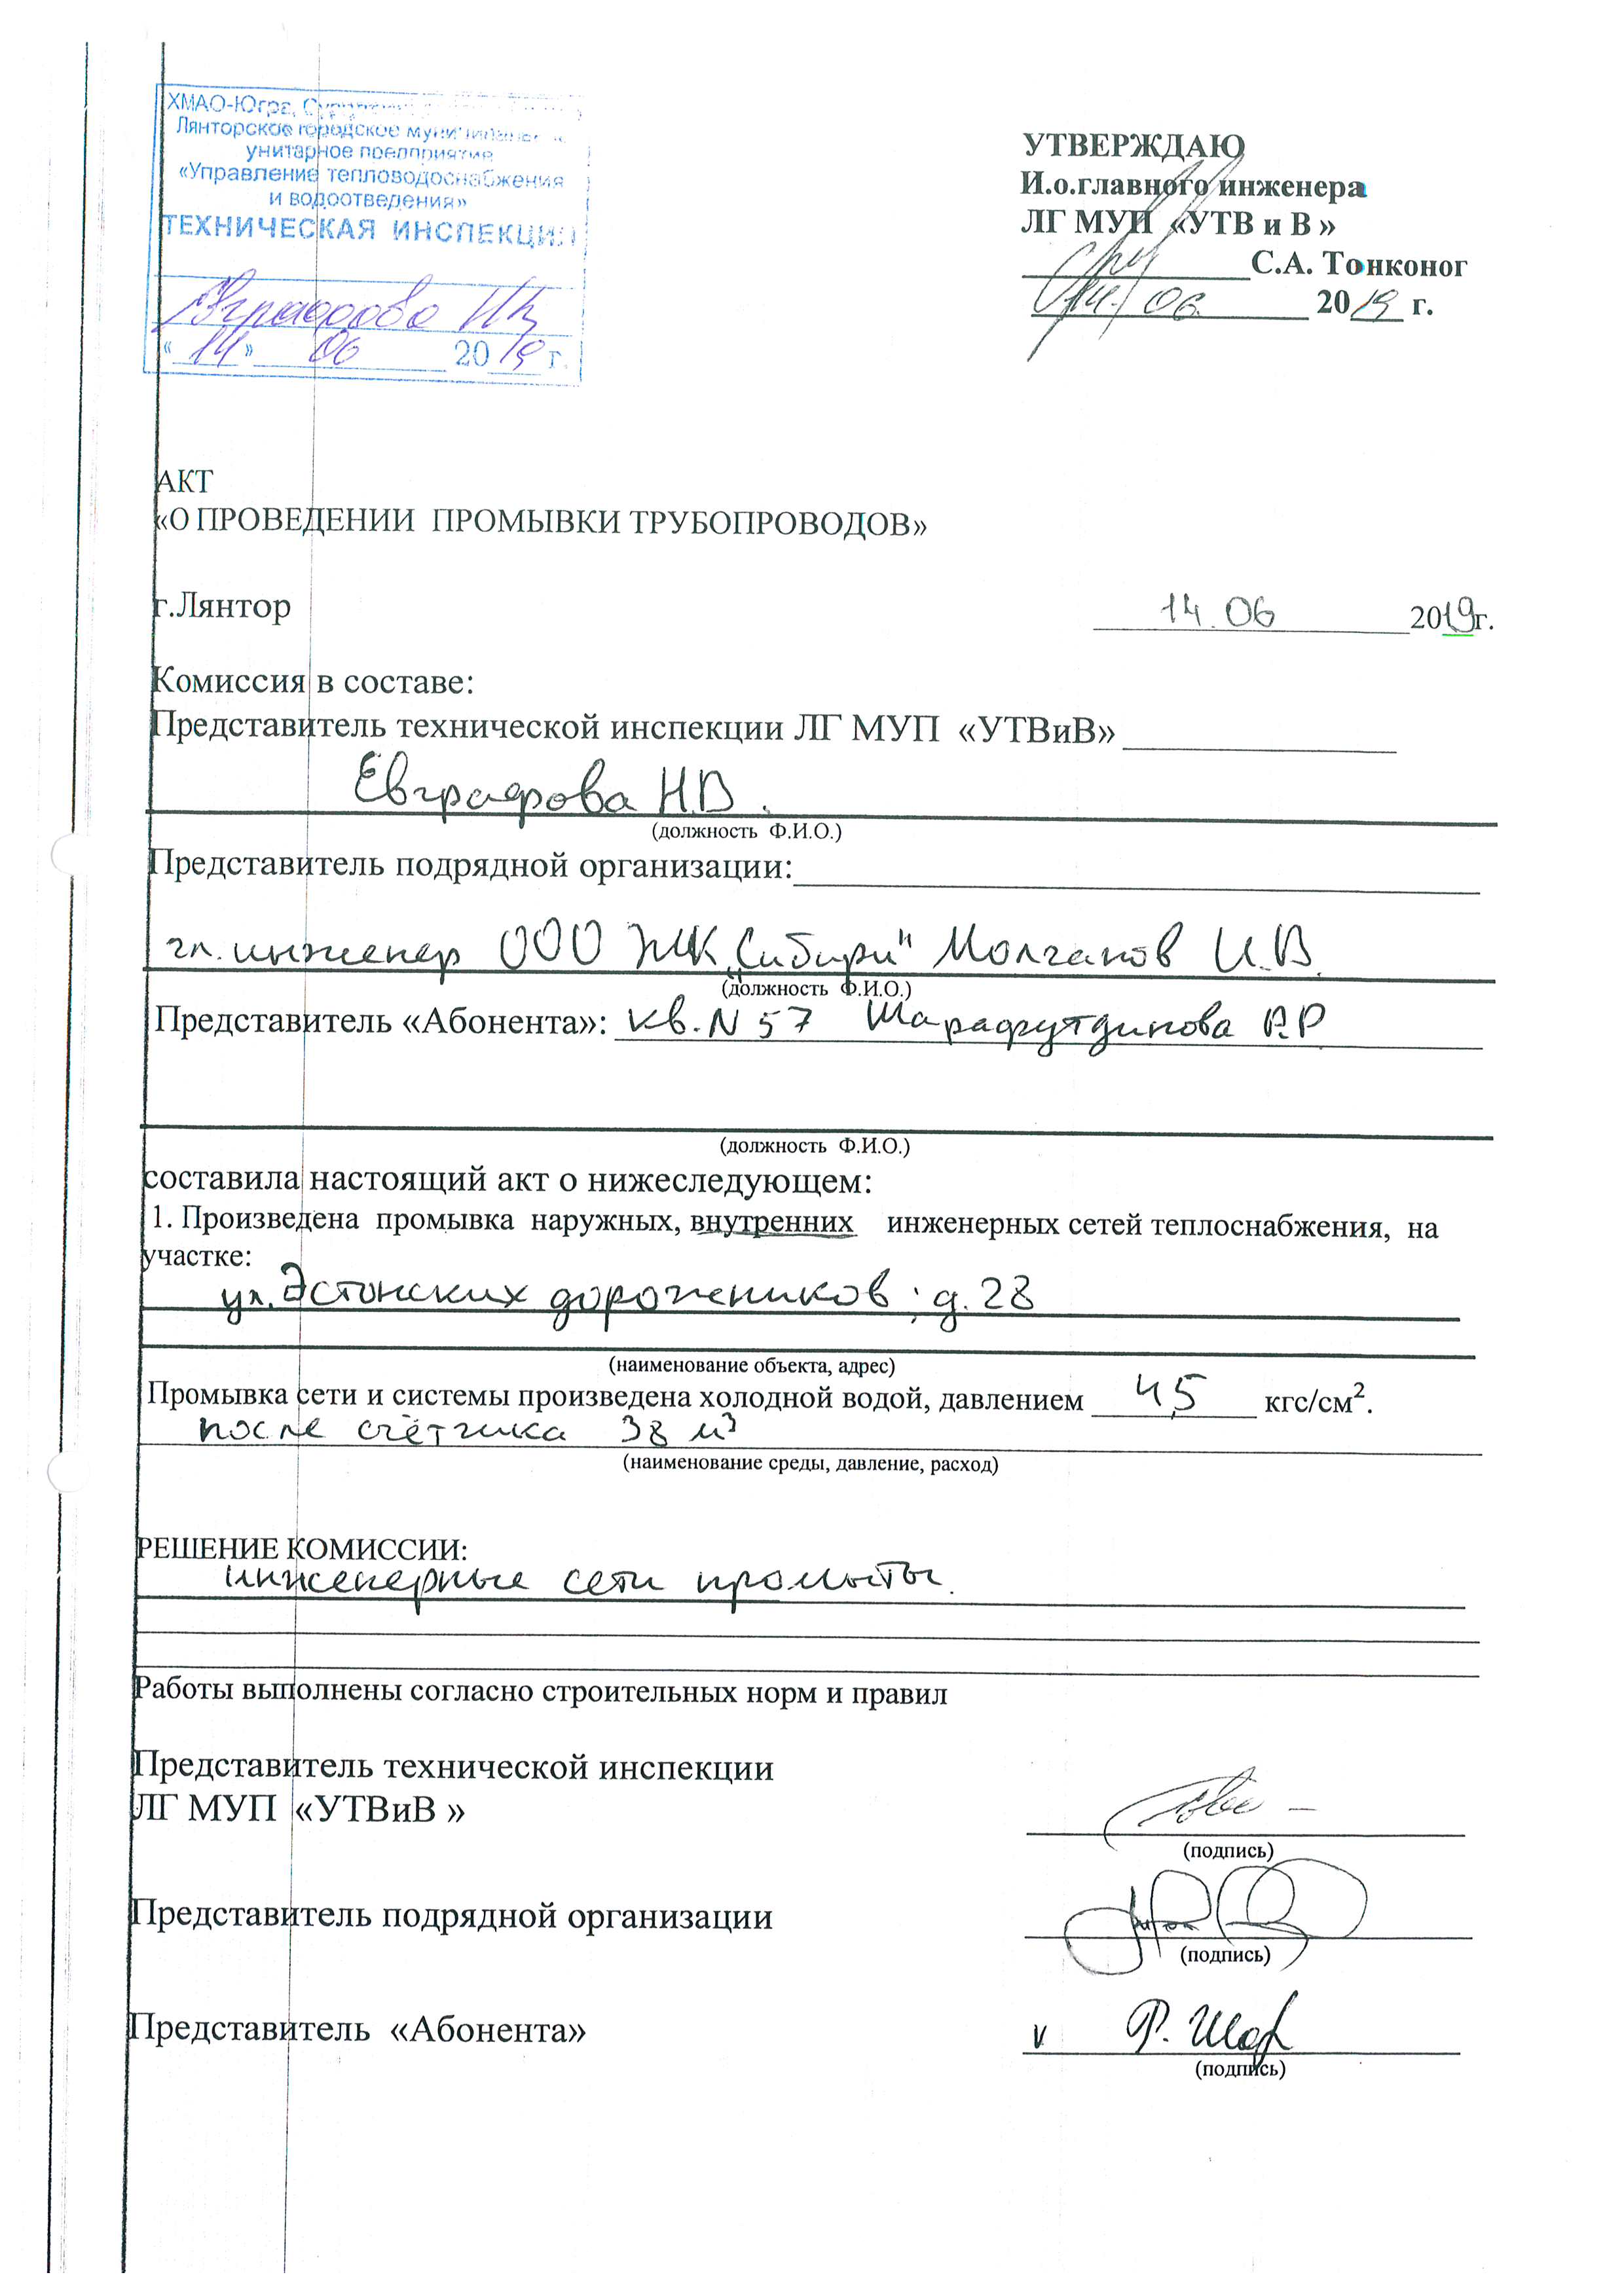 ХМАО-Югра,
Лянторское городское
унитарное предприятие
«Управление тепловодоснабжения
и водоотведения»
ТЕХНИЧЕСКАЯ ИНСПЕКЦИЯ
Евграфова Н.В.
«14» 06 2019 г.
УТВЕРЖДАЮ
И.о.главного инженера
ЛГ МУП «УТВ и В »
С.А. Тонконог
14. 06 2019 г.
АКТ
«О ПРОВЕДЕНИИ ПРОМЫВКИ ТРУБОПРОВОДОВ»
г.Лянтор 14.06 2019г.
Комиссия в составе:
Представитель технической инспекции ЛГ МУП «УТВиВ»
Евграфова Н.В.
(должность Ф.И.О.)
Представитель подрядной организации:
гл. инженер ООО ЖК „Сибири" Молчанов И.В.
(должность Ф.И.О.)
Представитель «Абонента»: кв. N 57 Шарафутдинова Р.Р.
(должность Ф.И.О.)
составила настоящий акт о нижеследующем:
1. Произведена промывка наружных, внутренних инженерных сетей теплоснабжения, на
участке:
ул. Эстонских дорожников, д. 28
(наименование объекта, адрес)
Промывка сети и системы произведена холодной водой, давлением 4,5 кгс/см².
после счётчика 38 м³
(наименование среды, давление, расход)
РЕШЕНИЕ КОМИССИИ:
инженерные сети промыты.
Работы выполнены согласно строительных норм и правил
Представитель технической инспекции
ЛГ МУП «УТВиВ »
(подпись)
Представитель подрядной организации
(подпись)
Представитель «Абонента» v Р. Шар
(подпись)